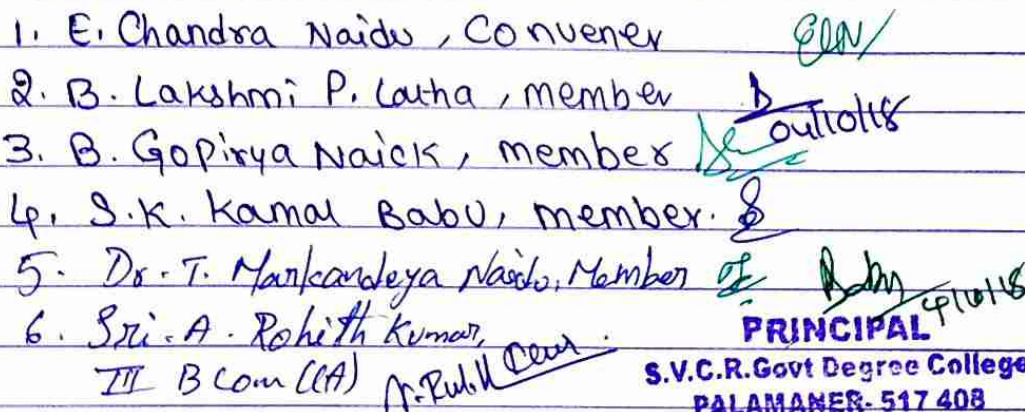 1. E. Chandra Naidu, Convener
2. B. Lakshmi P. Latha, member
04/10/18
3. B. Gopirya Naick, member
4. S.K. Kamal Babu, member.
5. Dr. T. Markandeya Naidu, Member
4/10/18
6. Sri. A. Rohith Kumar,
PRINCIPAL
III B Com (CA)
S.V.C.R.Govt Degree College
PALAMANER- 517 408